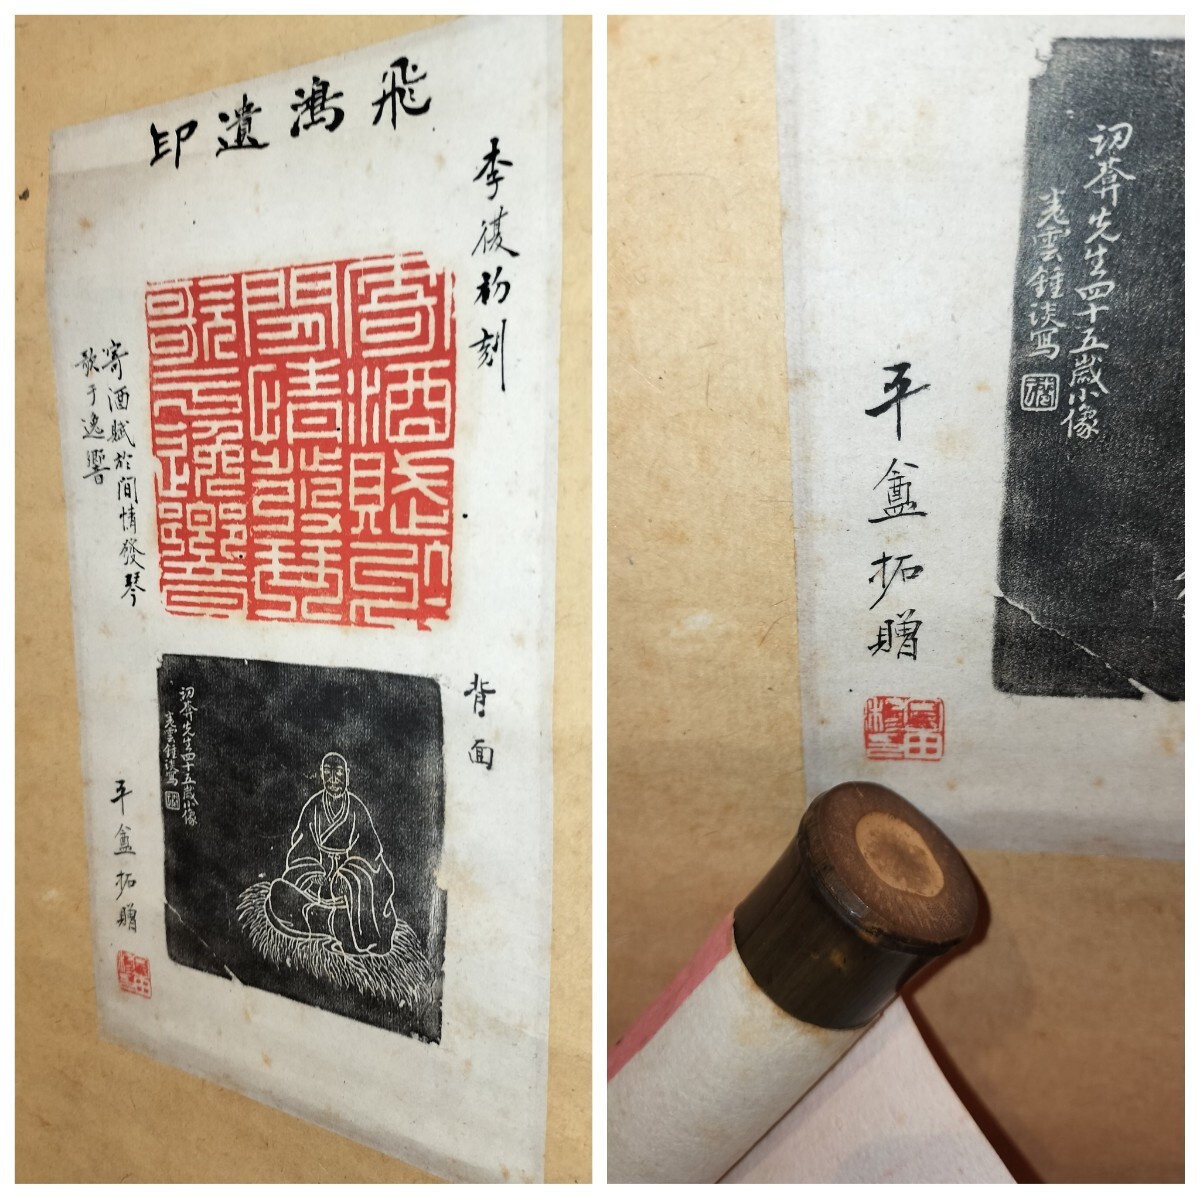 飛鴻遺印
李復初刻
寄酒賦於閒情發琴
歌于逸響
背面
切葊先生四十五歲小像
老雲鍾淡寫
平盦拓贈
切葊先生四十五歲小像
老雲鍾淡寫
平盦拓贈